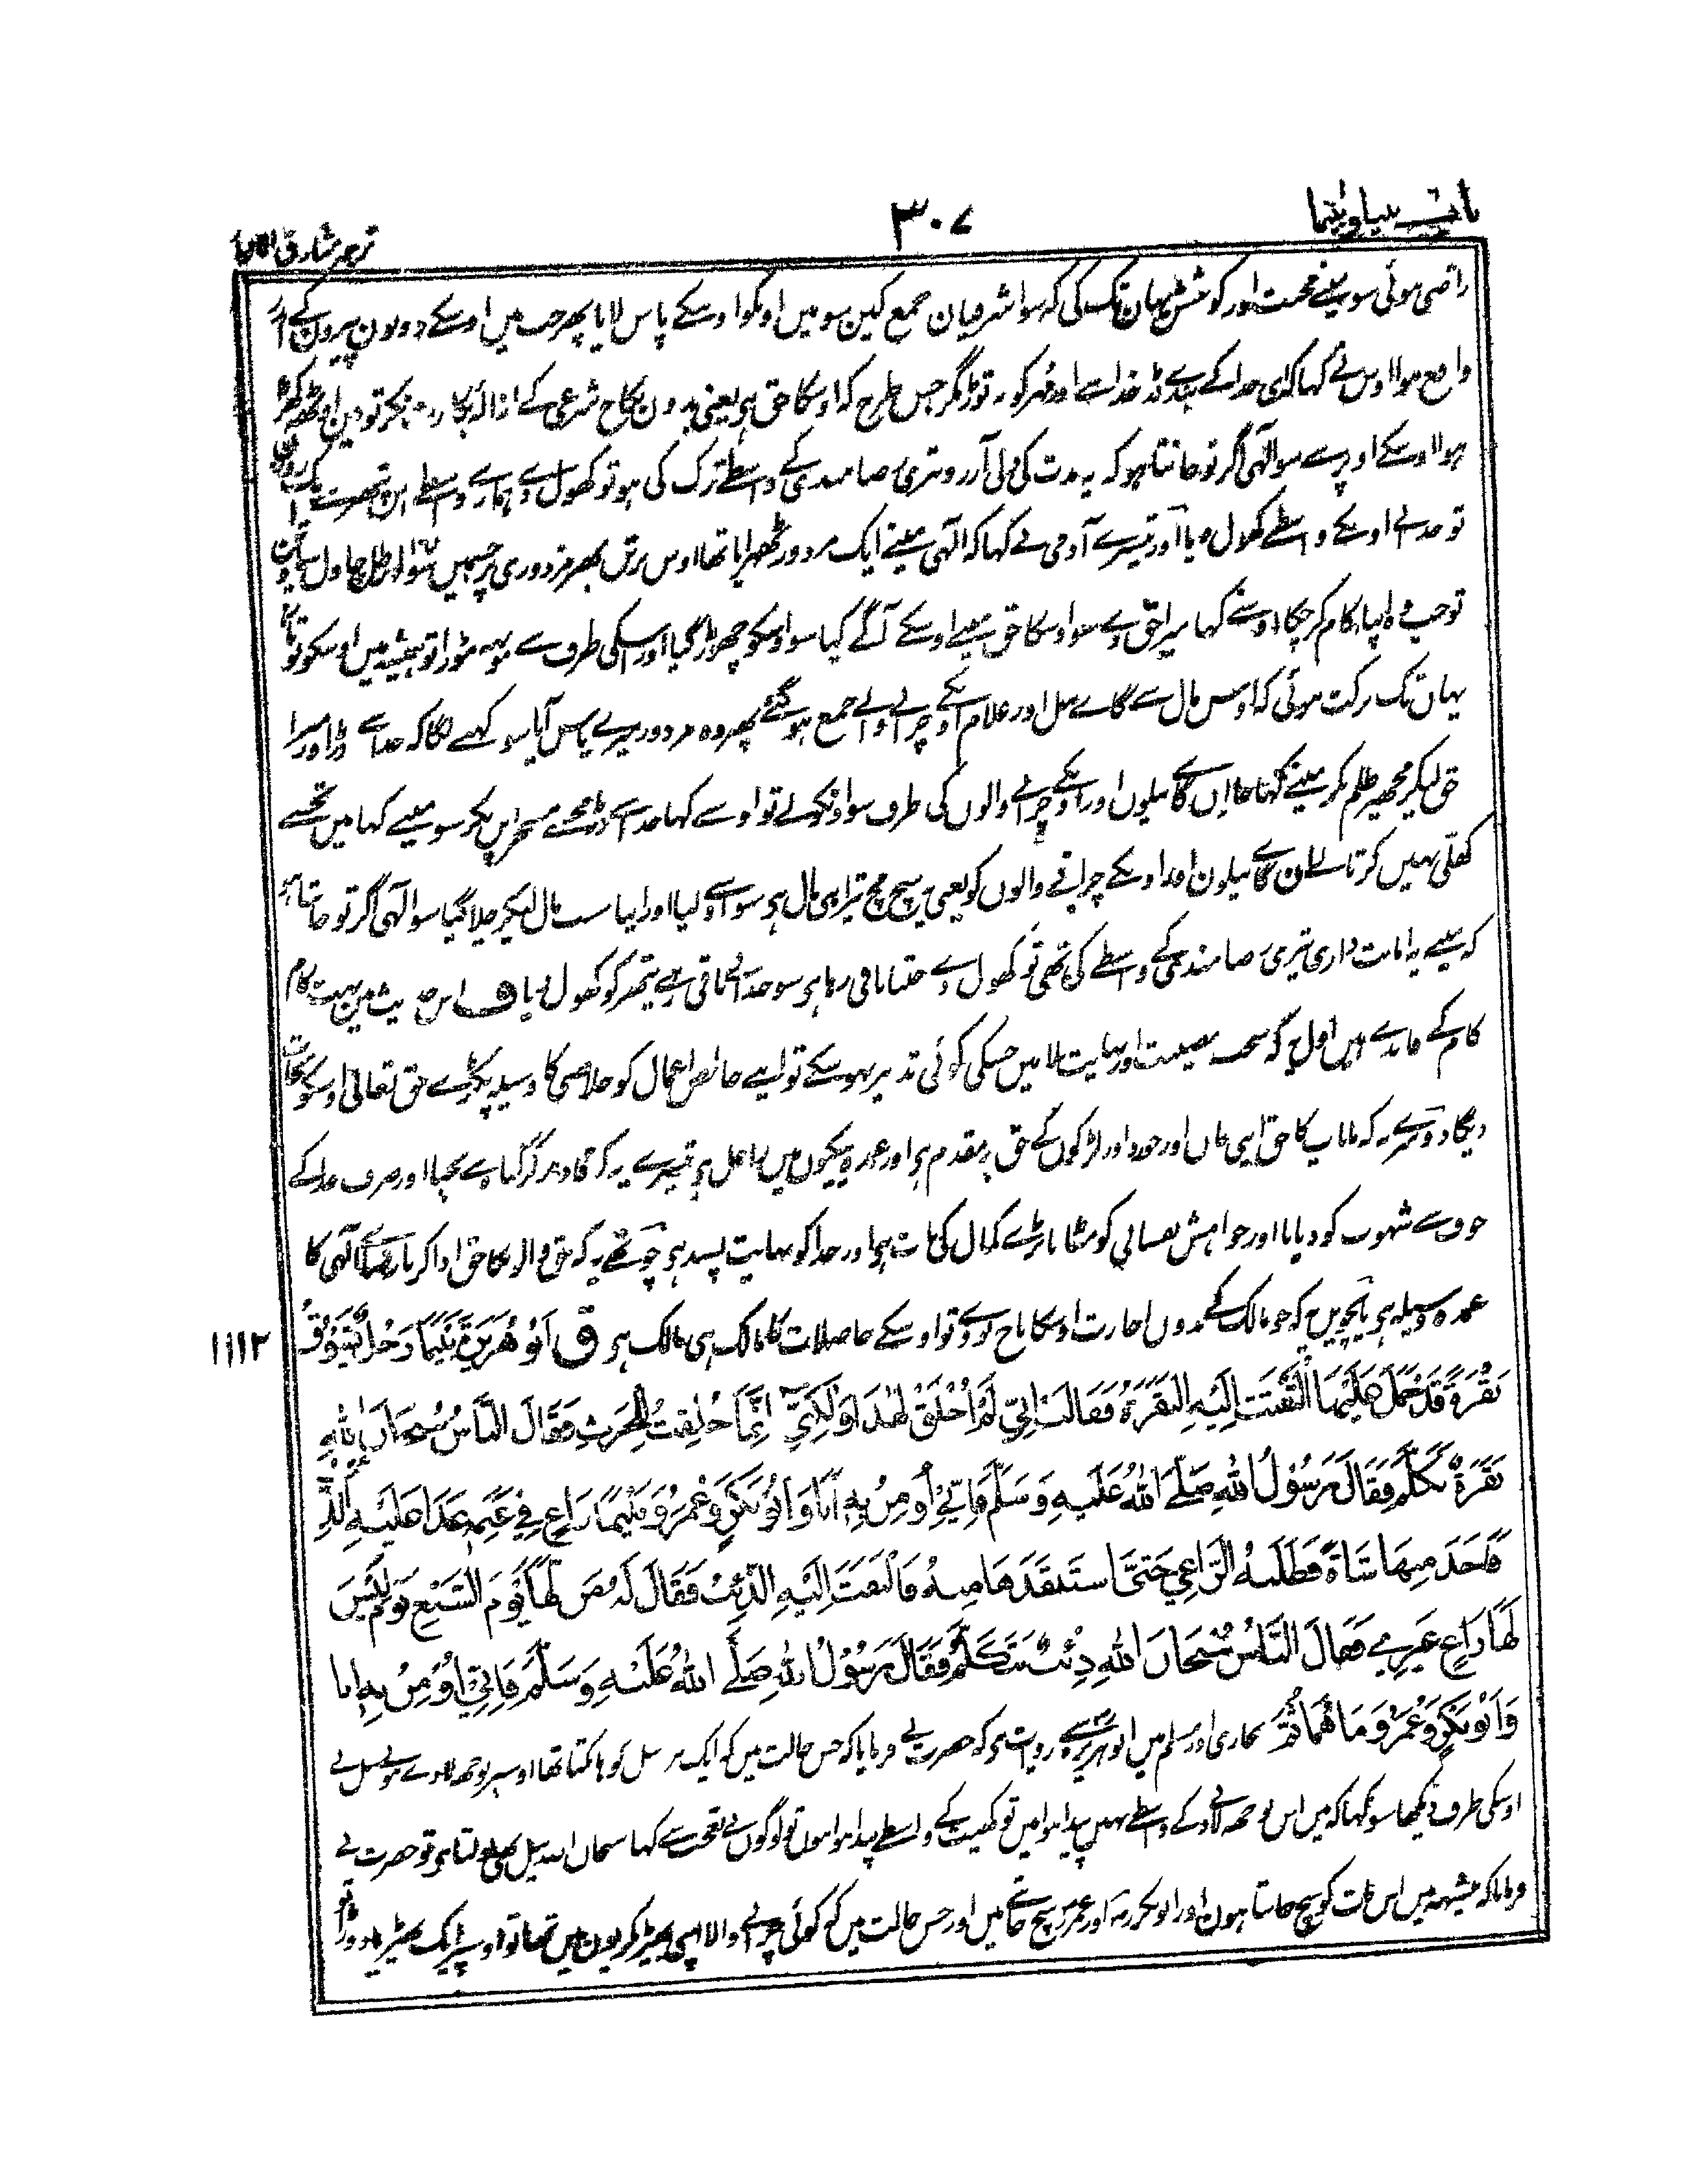 ۳۰۷
راضی ہوئی سو مینے محنت اور کوشش یہان تک کی کہ سو اشرفیان جمع کین سو میں اونکو اوسکے پاس لایا پھر جب میں اوسکے دونون پیرون کے
واقع ہوا اوس نے کہا کہ ای خدا کے بندے ڈر خدا سے اور مہر کو نہ توڑ مگر جس طرح کہ اوسکا حق ہی یعنی بدون نکاح شرعی کے ازالہ بکارت نکر تو مین اوٹھ کھڑا
ہوا اوسکے اوپر سے سو الٰہی اگر تو جانتا ہو کہ یہ مدت کی دلی آرزو تیری رضامندی کے واسطے ترک کی ہو تو کھول دے ہمارے واسطے اس پتھر سے
تو خدا نے اوسکے واسطے کھول دیا اور تیسرے آدمی نے کہا کہ الٰہی مینے ایک مزدور ٹھہرایا تھا اوس برتن بھر مزدوری پر جسمیں سولہ رطل چاول
تو جب وہ اپنا کام کر چکا اوسنے کہا میرا حق دے سو اوسکا حق مینے اوسکے آگے کیا سو اوسکو چھوڑ گیا اور اسکی طرف سے مونہہ موڑا تو ہمیشہ میں اوسکو
یہاں تک برکت ہوئی کہ اوس مال سے گائے بیل اور غلام اوسکے چرانے والے جمع ہو گئے پھر وہ مزدور میرے پاس آیا سو کہنے لگا کہ خدا سے ڈر اور میرا
حق لیکر مجھپر ظلم نکر مینے کہا جا اس گائے بیلوں اور اوسکے چرانے والوں کی طرف سو اونکو لے تو اوسنے کہا خدا سے ڈر مجھسے مسخراپن نکر سو مینے کہا میں تجھسے
ٹھٹھا نہیں کرتا لے ان گائے بیلون اور اوسکے چرانے والوں کو یعنی یہ سچ مچ تیرا ہی مال ہو سو اوسنے لیا اور اپنا سب مال لیکر چلا گیا سو الٰہی اگر تو جانتا ہے
کہ مینے یہ امانت داری تیری رضامندی کے واسطے کی تھی تو کھول دے جتنا باقی رہا ہو سو خدا نے باقی رہے پتھر کو کھول دیا ف اس حدیث مین بہت کام
کام کے فائدے ہیں اول یہ کہ سخت مصیبت اور نہایت بلا میں جسکی کوئی تدبیر نہو سکے تو اپنے خالص اعمال کو خلاصی کا وسیلہ پکڑے حق تعالیٰ اوسکو نجات
دیگا دوسرے یہ کہ ماباپ کا حق اپنی جان اور جورو اور لڑکوں کے حق پر مقدم ہو اور عمدہ نیکیوں میں داخل ہو تیسرے یہ کہ قادر ہو کر گناہ سے بچنا اور صرف خدا کے
خوف سے شہوت کو دبانا اور خواہش نفسانی کو مٹانا بڑے کمال کی بات ہو اور خدا کو نہایت پسند ہو چوتھے یہ کہ حق والوں کا حق ادا کرنا رضاے الٰہی کا
عمدہ وسیلہ ہو پانچویں یہ کہ جو مالک کے بدون اجازت اوسکا اناج بو دے تو اوسکے حاصلات کا مالک ہی مالک ہو ق اَبُو هُرَيْرَةَ بَيْنَمَا رَجُلٌ يَسُوقُ ۱۱۱۲
بَقَرَةً قَدْ حَمَلَ عَلَيْهَا الْتَفَتَتْ اِلَيْهِ الْبَقَرَةُ فَقَالَتْ اِنِّي لَمْ اُخْلَقْ لِهٰذَا وَلٰكِنِّي اِنَّمَا خُلِقْتُ لِلْحَرْثِ فَقَالَ النَّاسُ سُبْحَانَ اللهِ
بَقَرَةٌ تَكَلَّمُ فَقَالَ رَسُوْلُ اللهِ صَلَّى اللهُ عَلَيْهِ وَسَلَّمَ فَاِنِّيْ اُوْمِنُ بِهٖ اَنَا وَاَبُوْ بَكْرٍ وَعُمَرُ وَبَيْنَمَا رَاعٍ فِيْ غَنَمِهٖ عَدَا عَلَيْهِ الذِّئْبُ
فَاَخَذَ مِنْهَا شَاةً فَطَلَبَهُ الرَّاعِي حَتّٰى اسْتَنْقَذَهَا مِنْهُ فَالْتَفَتَ اِلَيْهِ الذِّئْبُ فَقَالَ لَهُ مَنْ لَهَا يَوْمَ السَّبُعِ يَوْمَ لَيْسَ
لَهَا رَاعٍ غَيْرِيْ فَقَالَ النَّاسُ سُبْحَانَ اللهِ ذِئْبٌ يَتَكَلَّمُ فَقَالَ رَسُوْلُ اللهِ صَلَّى اللهُ عَلَيْهِ وَسَلَّمَ فَاِنِّيْ اُوْمِنُ بِهٖ اَنَا
وَاَبُوْ بَكْرٍ وَعُمَرُ وَمَا هُمَا ثَمَّ بخاری اور مسلم میں ابو ہریرہ سے روایت ہو کہ حضرت نے فرمایا کہ جس حالت میں کہ ایک مرد بیل کو ہانکتا تھا اوسپر بوجھ لادے ہوئے بیل نے
اوسکی طرف دیکھا سو کہا کہ میں اس بوجھ لادنے کے واسطے نہیں پیدا ہوا میں تو کھیت کے واسطے پیدا ہوا ہوں تو لوگوں نے تعجب سے کہا سبحان اللہ بیل بھی بولتا ہو تو حضرت نے
فرمایا کہ بیشبہہ میں اس بات کو سچ جانتا ہوں اور ابوبکر اور عمر سچ جانتے ہیں اور جس حالت میں کہ کوئی چرانے والا اپنی بھیڑ بکریوں میں تھا تو اوسپر ایک بھیڑیا دوڑا